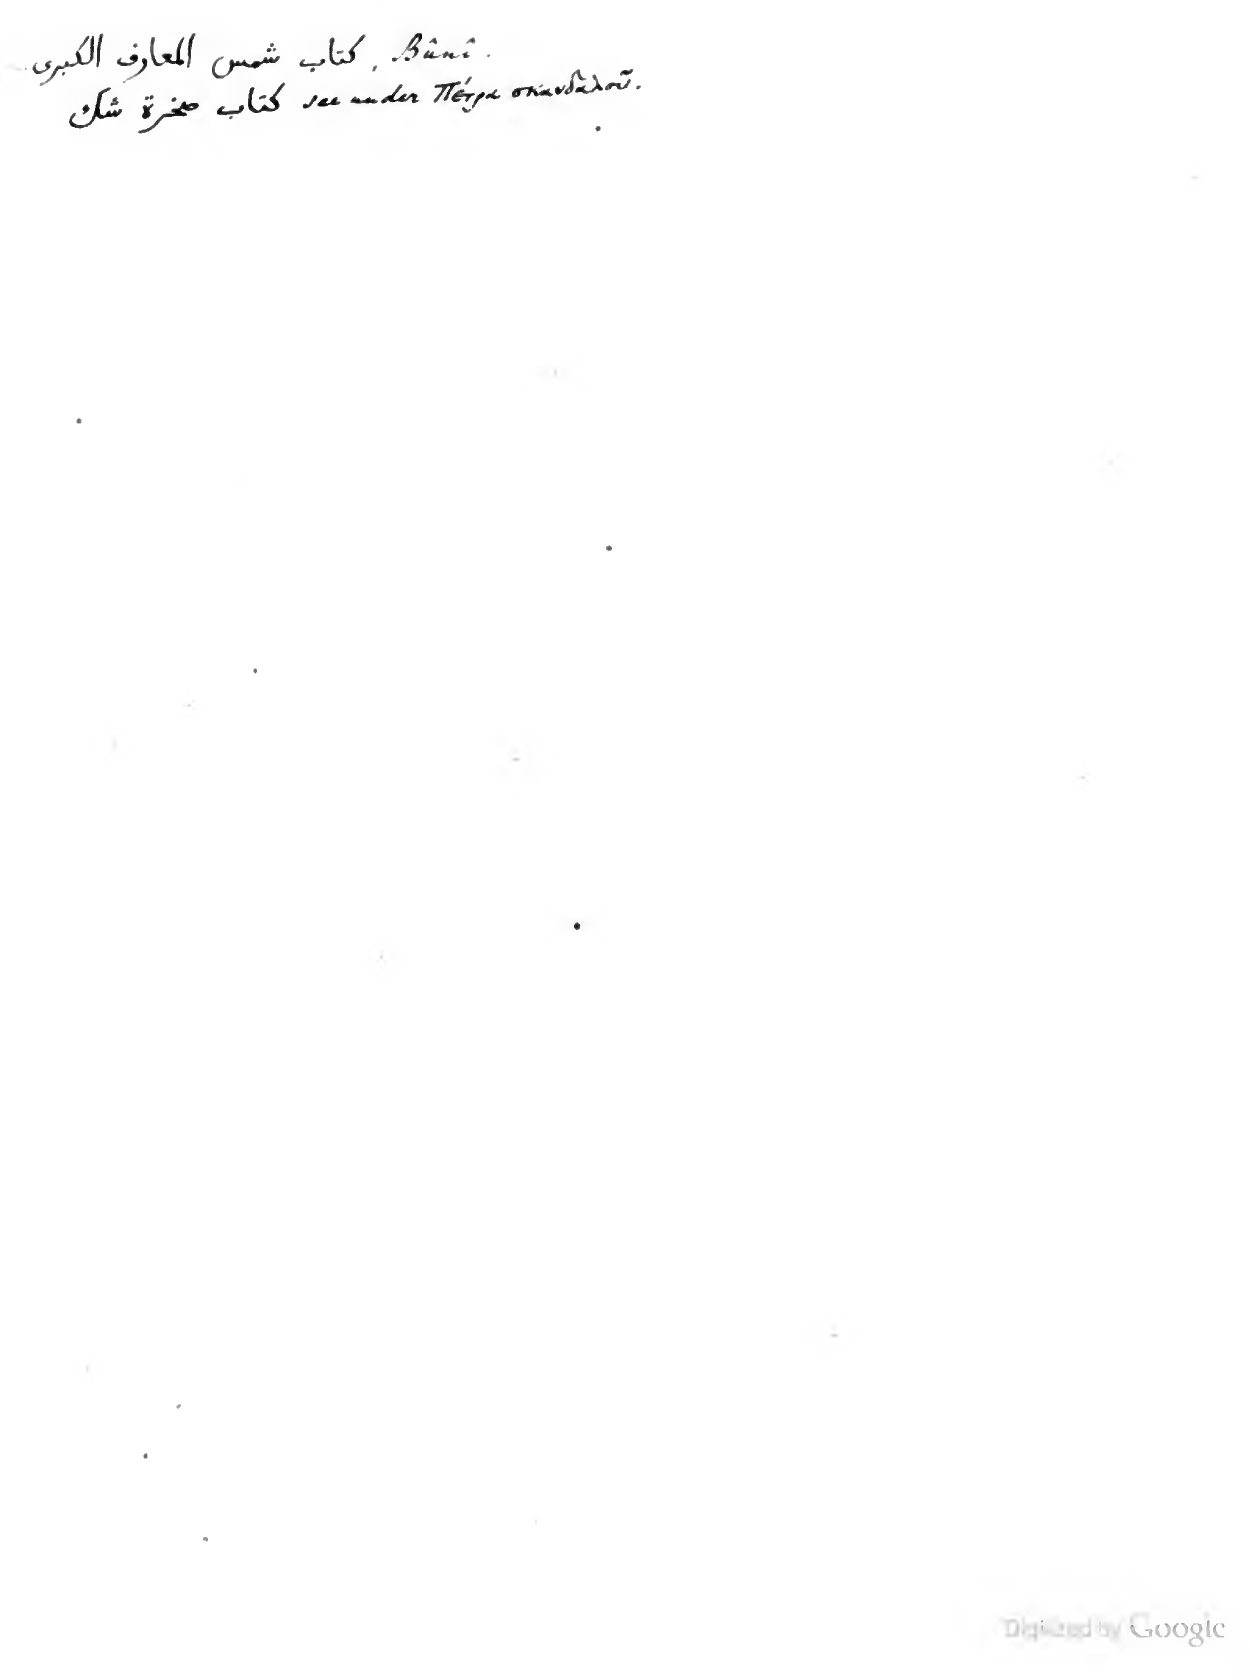 كتاب شمس المعارف الكبرى, Bûnî.
كتاب صخرة شك see under Πέτρα σκανδάλου.
Digitized by Google